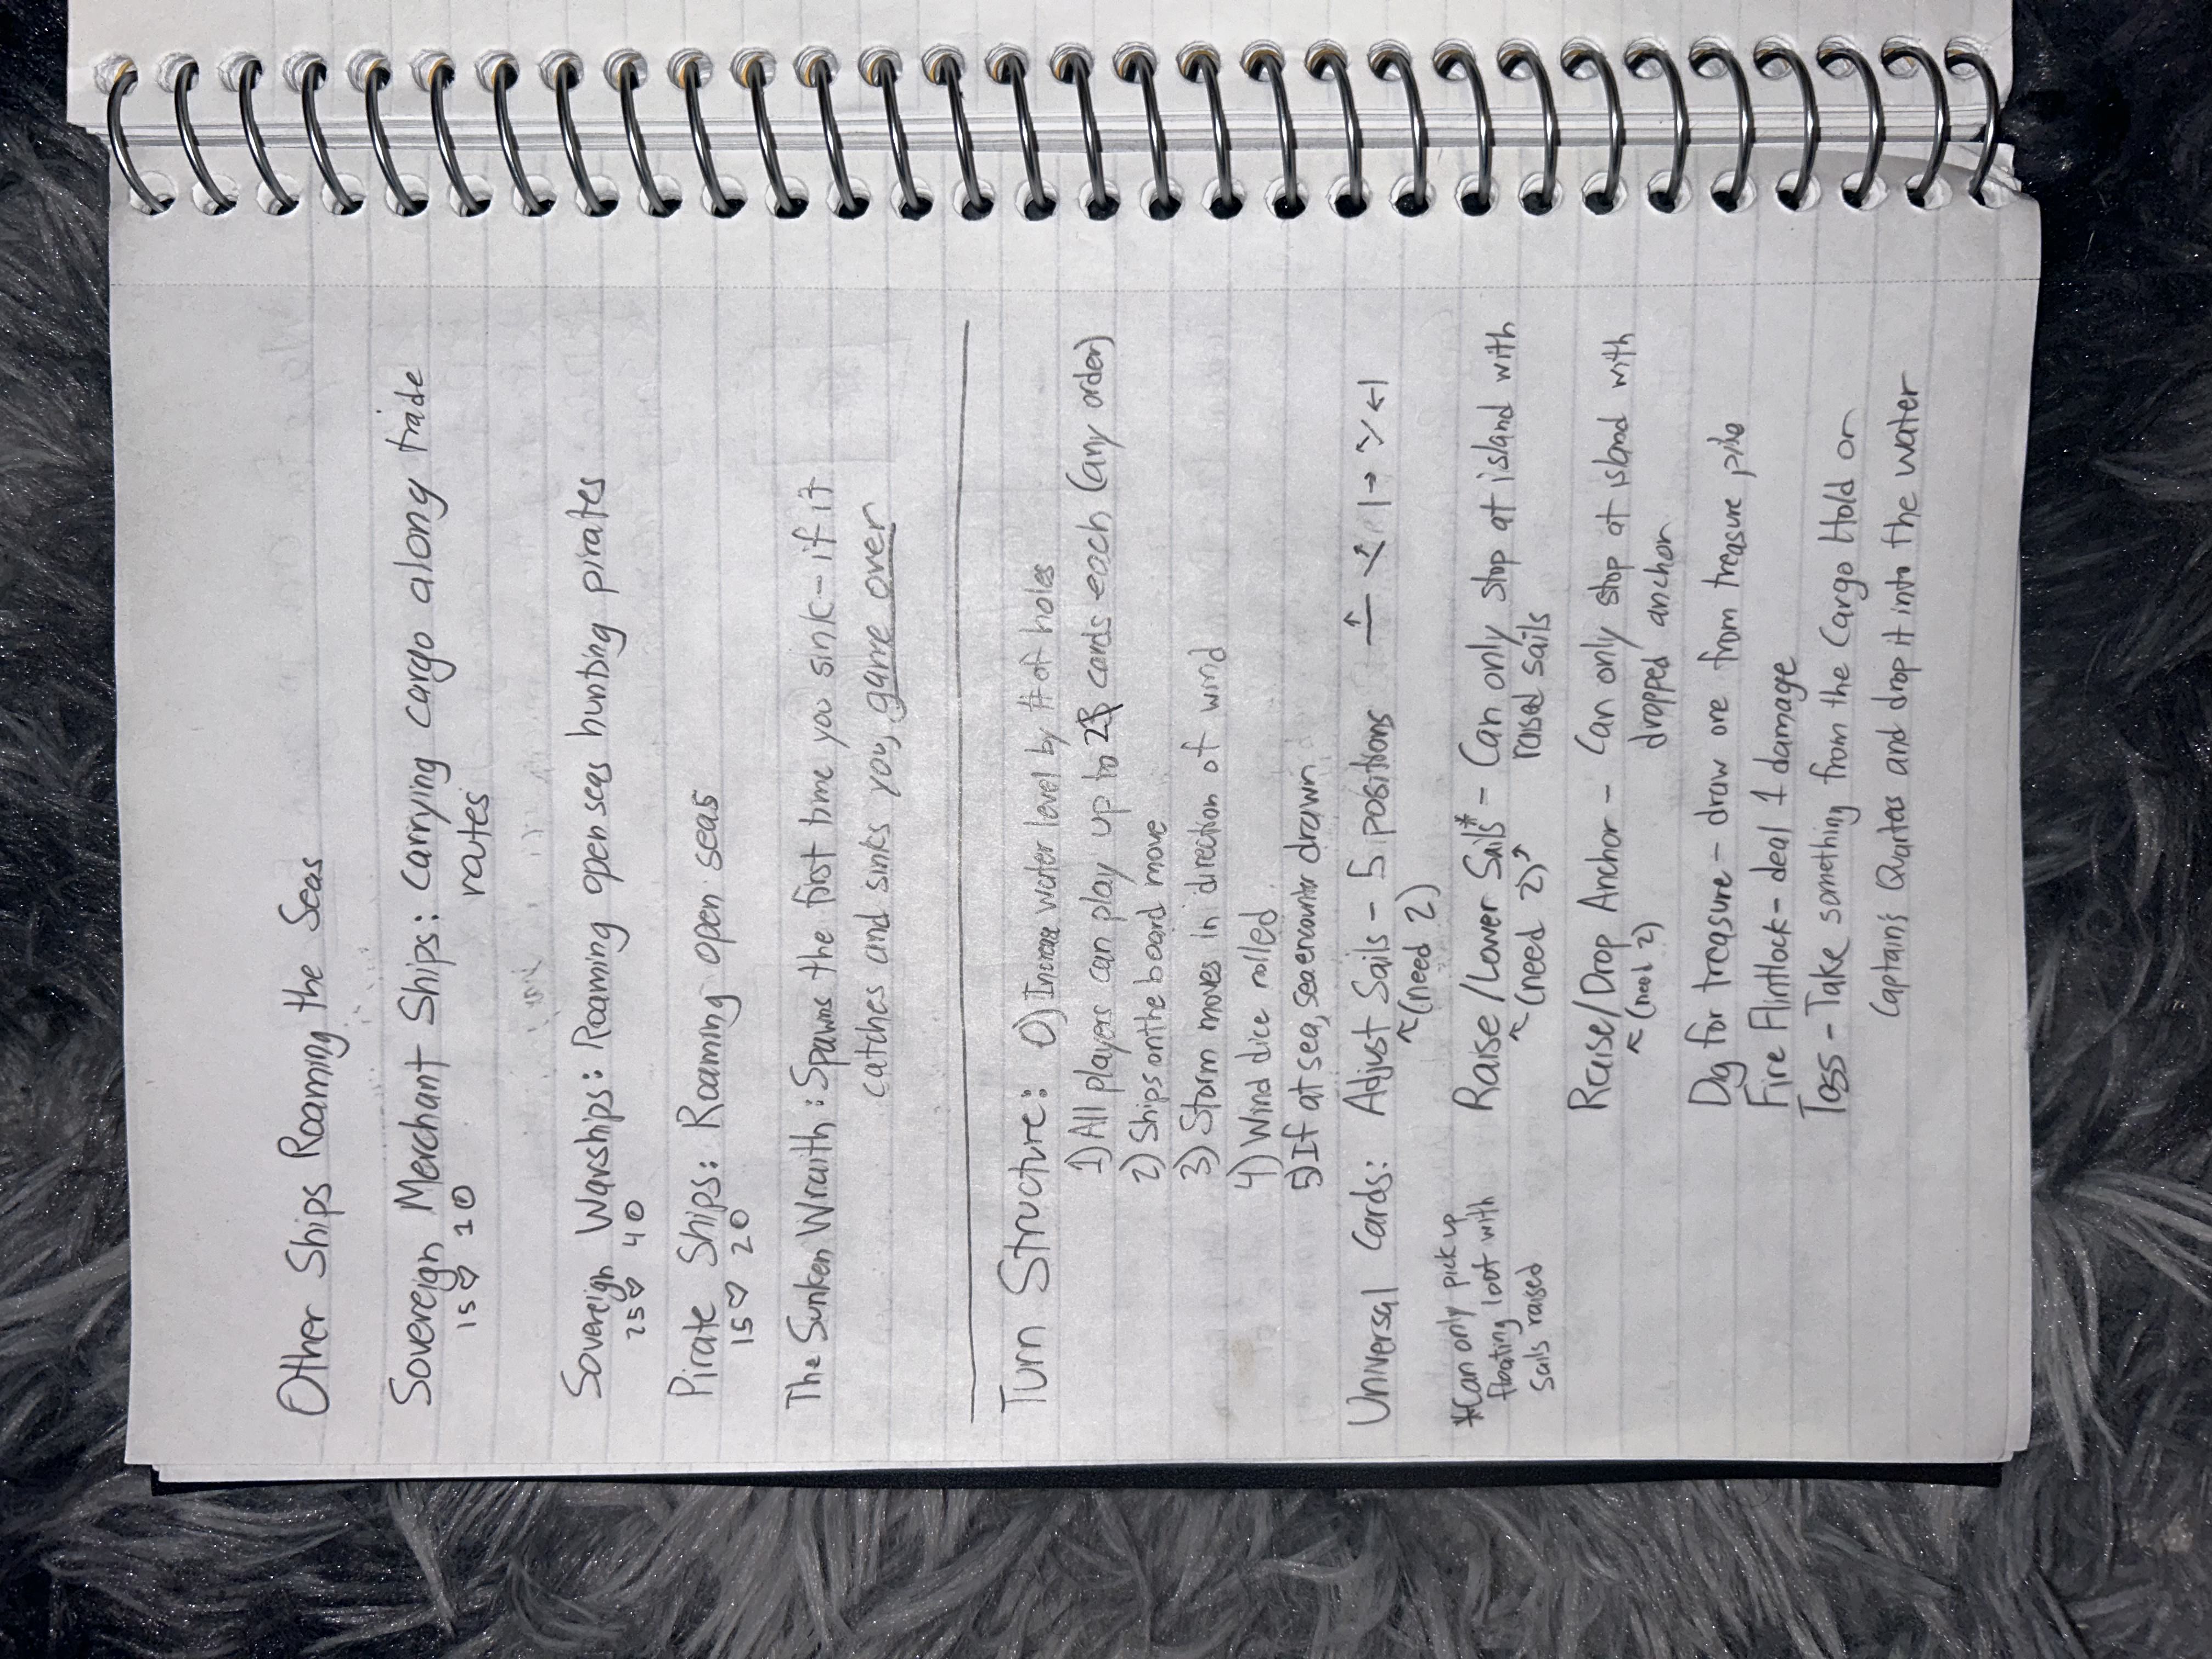 Other Ships Roaming the Seas
Sovereign Merchant Ships: carrying cargo along trade
15♡ 1O
routes
Sovereign Warships: Roaming open seas hunting pirates
25♡ 4O
Pirate Ships: Roaming open seas
15♡ 2O
The Sunken Wraith: Spawns the first time you sink - if it
catches and sinks you, game over
Turn Structure: 0) Increase water level by # of holes
1) All players can play up to 2 cards each (any order)
2) Ships on the board move
3) Storm moves in direction of wind
4) Wind dice rolled
5) If at sea, sea encounter drawn
Universal Cards: Adjust Sails - 5 positions
↖(need 2)
*Can only pick up
floating loot with
sails raised
Raise/Lower Sails* - Can only stop at island with
↖(need 2)↗ raised sails
Raise/Drop Anchor - Can only stop at island with
↖(need 2) dropped anchor
Dig for treasure - draw one from treasure pile
Fire Flintlock - deal 1 damage
Toss - Take something from the Cargo Hold or
Captain's Quarters and drop it into the water